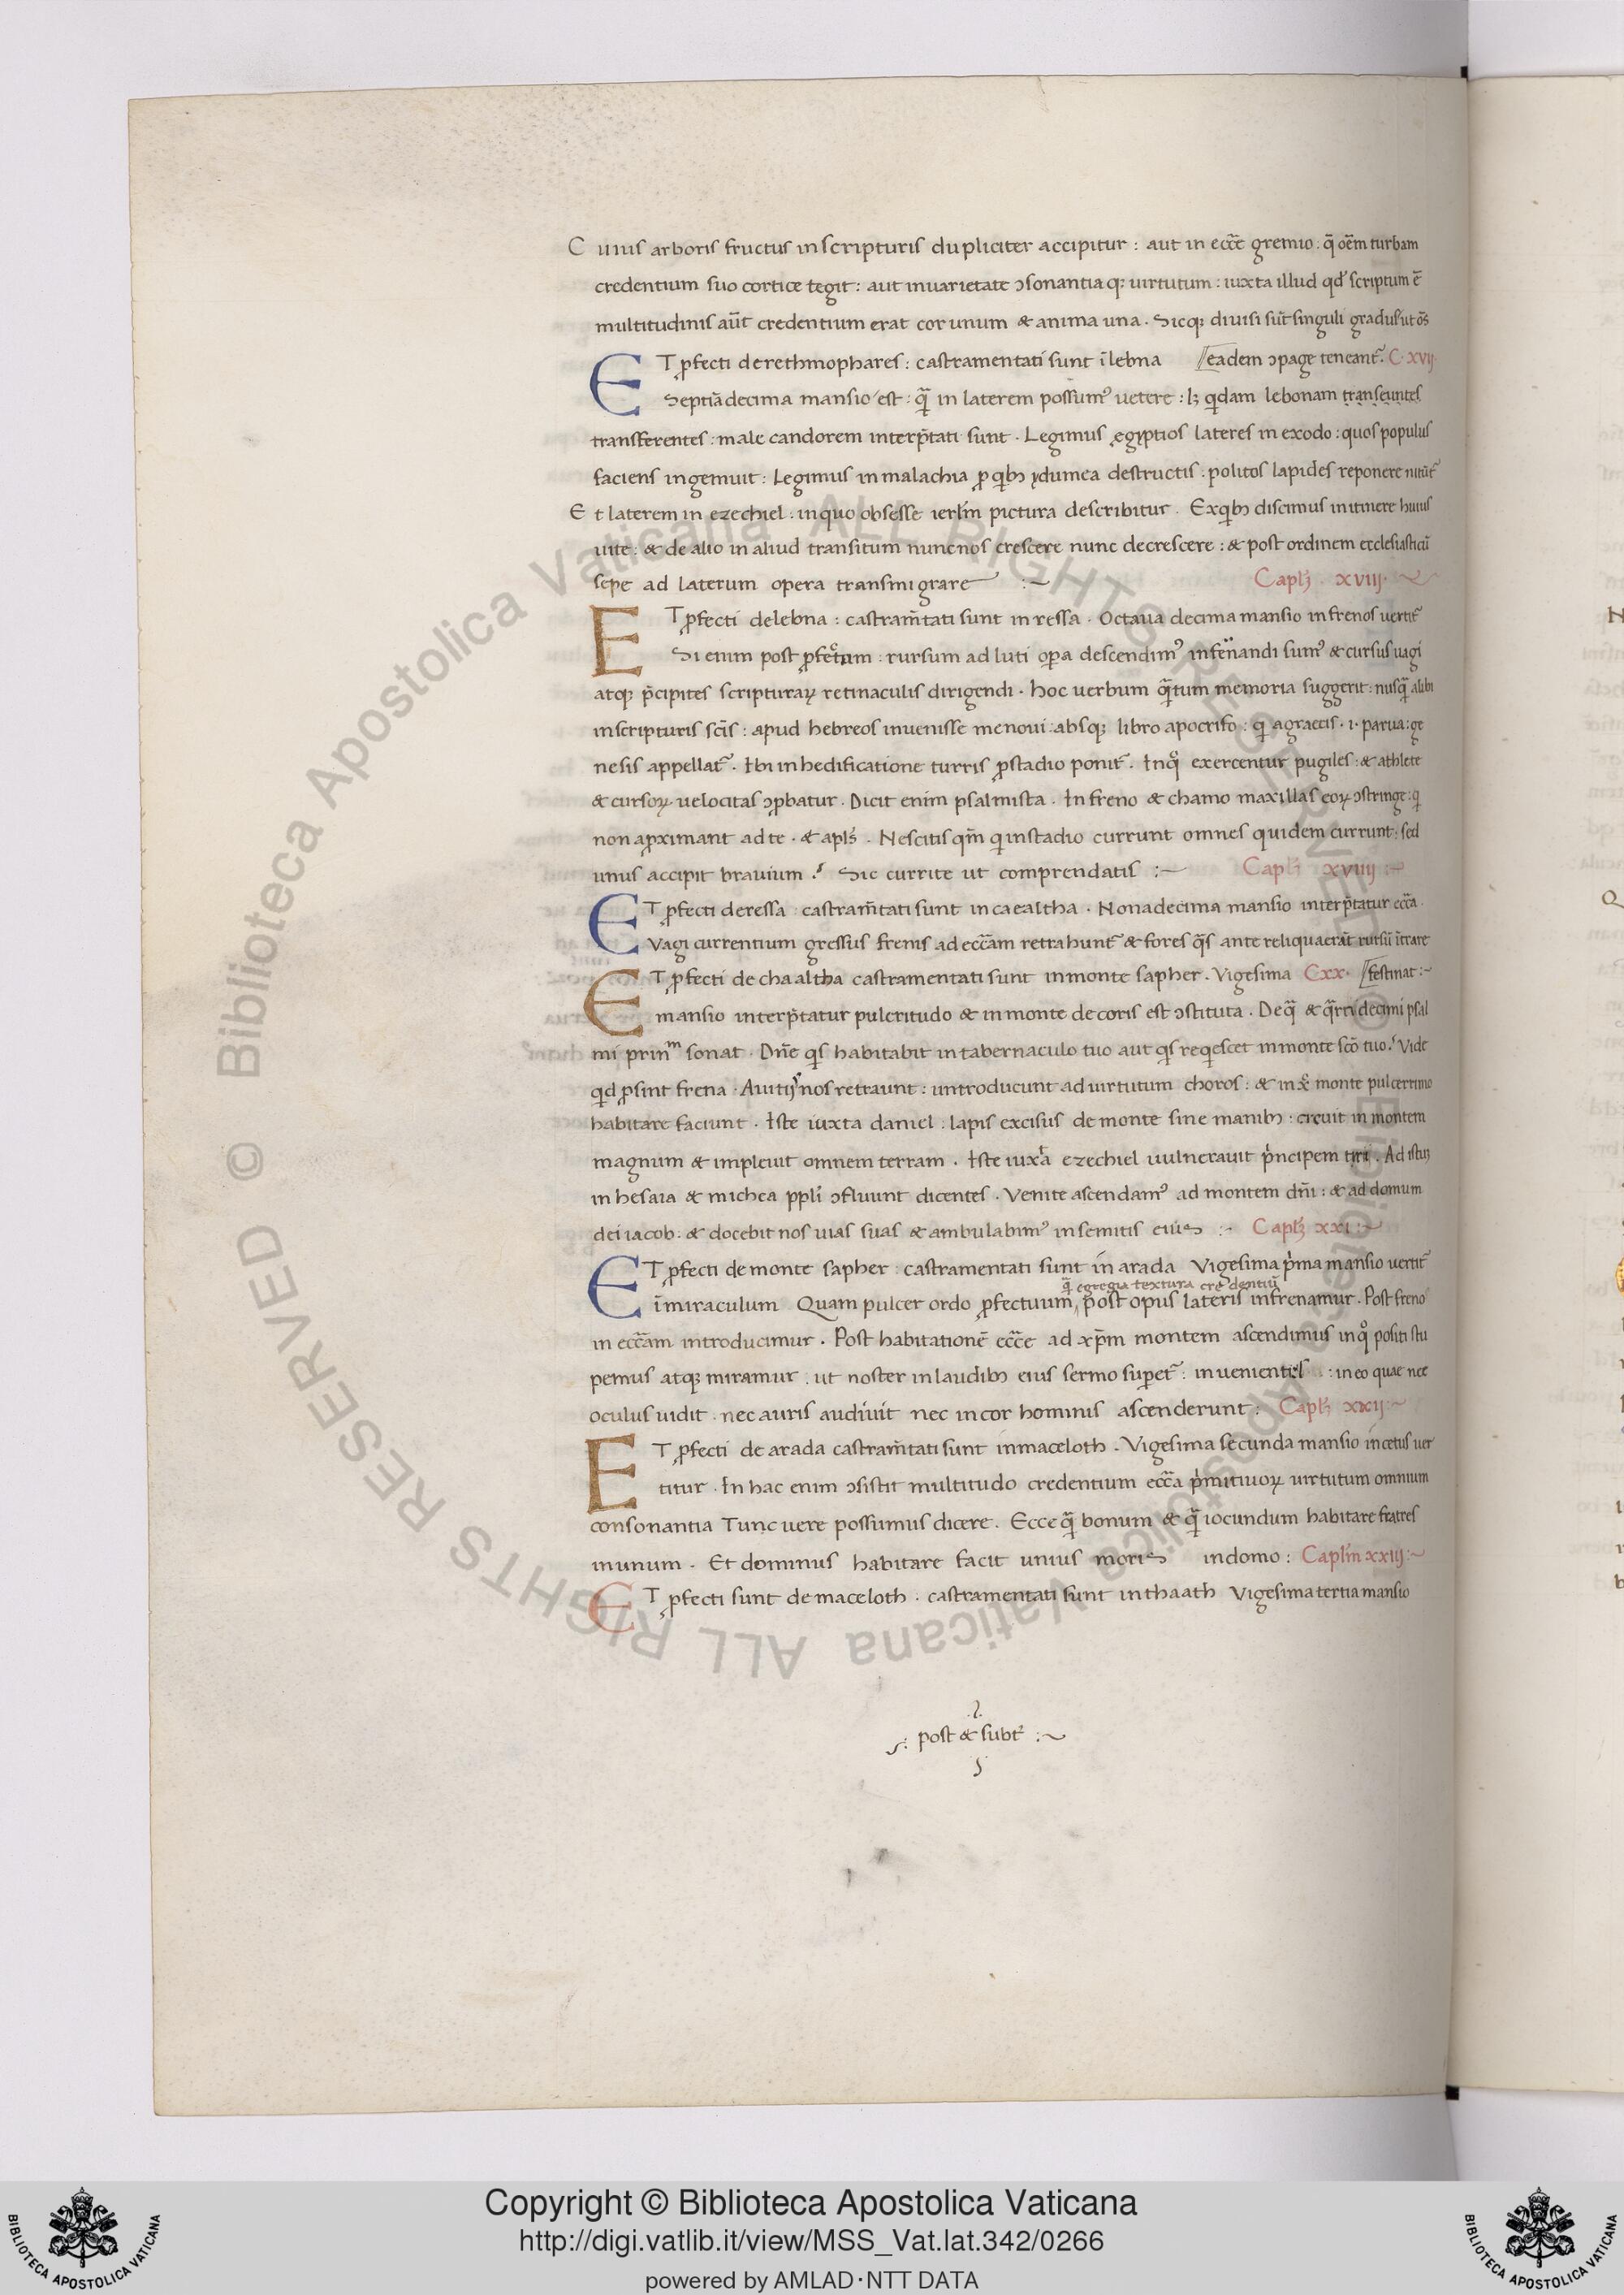 Cuius arboris fructus in scripturis dupliciter accipitur : aut in ecc̄e gremio : q̄ oēm turbam
credentium suo cortice tegit : aut in uarietate ↄsonantiaq; uirtutum : iuxta illud qd̄ scriptum ē
multitudinis aūt credentium erat cor unum & anima una . Sicq; diuisi sūt singuli gradus ut oēs
ET ꝓfecti de rethmophares : castramentati sunt ī lebna // eadem ↄpage teneant᷒ . C . xvij
Septīa decima mansio est : q̄ in laterem possum᷒ uetere : lꝫ qidam lebonam transeuntes
transferentes : male candorem interp̄tati sunt . Legimus egyptios lateres in exodo : quos populus
faciens ingemuit : Legimus in malachia ꝓ qibꝫ ydumea destructis : politos lapides reponere nitūt᷒
Et laterem in ezechiel . in quo obsesse ierl̄m pictura describitur . Ex qibꝫ discimus in itinere huius
uite : & de alio in aliud transitum nunc nos crescere nunc decrescere : & post ordinem ecclesiasticū
sepe ad laterum opera transmigrare :~ Capl̄ꝫ . xviij .
ET ꝓfecti de lebna : castram̄tati sunt in ressa . Octaua decima mansio in frenos uertit᷒
Si enim post ꝓfectum : rursum ad luti oꝑa descendim᷒ infrenandi sum᷒ & cursus uagi
atq; p̄cipites scripturaꝝ retinaculis dirigendi . hoc uerbum q̄tum memoria suggerit : nusq̄ alibi
in scripturis sc̄is : apud hebreos inuenisse me noui : absq; libro apocrifo : qi a graecis . i . parua : ge
nesis appellat᷒ . Ibi in hedificatione turris ꝓ stadio ponit᷒ . In qo exercentur pugiles : & athlete
& cursoꝝ . uelocitas ↄꝓbatur . Dicit enim psalmista . In freno & chamo maxillas eoꝝ ↄstringe : qi
non aꝓximant ad te . & apl̄s . Nescitis qm̄ qi in stadio currunt omnes quidem currunt : sed
unus accipit brauium .᷒ Sic currite ut comprendatis :~ Capl̄ꝫ xviiij :~
ET ꝓfecti de ressa : castram̄tati sunt in caealtha . Nonadecima mansio interp̄tatur ecc̄a .
Vagi currentium gressus frenis ad ecc̄am retrahunt᷒ & fores q̄s ante reliquaerāt rursū ītrare
ET ꝓfecti de chaaltha castramentati sunt in monte sapher . Vigesima Cxx . // festinat :~
mansio interp̄tatur pulcritudo & in monte decoris est ↄstituta . De q̄ & q̄rti decimi psal
mi prin᷒m sonat . Dn̄e qis habitabit in tabernaculo tuo aut qis reqiescet in monte sc̄o tuo .᷒ Vide
qid ꝓsint frena . A uitijs nos retraunt : untroducunt ad uirtutum choros : & in x̄o monte pulcerrimo
habitare faciunt . Iste iuxta daniel : lapis excisus de monte sine manibꝫ : creuit in montem
magnum & impleuit omnem terram . Iste iuxta ezechiel uulnerauit p̄ncipem tiri . Ad istuꝫ
in hesaia & michea ppl̄i ↄfluunt dicentes . Venite ascendam᷒ ad montem dn̄i : & ad domum
dei iacob : & docebit nos uias suas & ambulabim᷒ in semitis eius :~ Capl̄ꝫ xxi :~
ET ꝓfecti de monte sapher : castramentati sunt in arada Vigesima p̄ma mansio uertit᷒
q̄ egregia textura credentiū
ī miraculum Quam pulcer ordo ꝓfectuum , post opus lateris infrenamur . Post freno
in ecc̄am introducimur . Post habitationē ecc̄e ad xp̄m montem ascendimus in qo positi stu
pemus atq; miramur . ut noster in laudibꝫ eius sermo suꝑet᷒ : inuenientes : in eo quae nec
oculus uidit . nec auris audiuit nec in cor hominis ascenderunt : Capl̄ꝫ xxij :~
ET ꝓfecti de arada castram̄tati sunt in maceloth . Vigesima secunda mansio in cetus uer
titur . In hac enim ↄsistit multitudo credentium ecc̄a p̄mitiuoꝝ uirtutum omnium
consonantia Tunc uere possumus dicere . Ecce q̄ bonum & q̄ iocundum habitare fratres
in unum . Et dominus habitare facit unius moris in domo : Capl̄m xxiij :~
ET ꝓfecti sunt de maceloth . castramentati sunt in thaath Vigesima tertia mansio
post & subt᷒ :~
Copyright © Biblioteca Apostolica Vaticana
http://digi.vatlib.it/view/MSS_Vat.lat.342/0266
powered by AMLAD·NTT DATA
BIBLIOTECA APOSTOLICA VATICANA
BIBLIOTECA APOSTOLICA VATICANA
© Biblioteca Apostolica Vaticana ALL RIGHTS RESERVED © Biblioteca Apostolica Vaticana ALL RIGHTS RESERVED